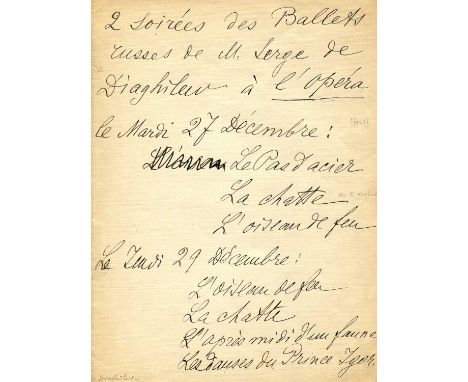 2 soirées des Ballets
russes de M. Serge de
Diaghilew à l'Opéra
le Mardi 27 Décembre :
Le Pas d'acier
La chatte
L'oiseau de feu
Le Jeudi 29 Décembre :
L'oiseau de feu
La chatte
L'après midi d'un faune
Les danses du Prince Igor.